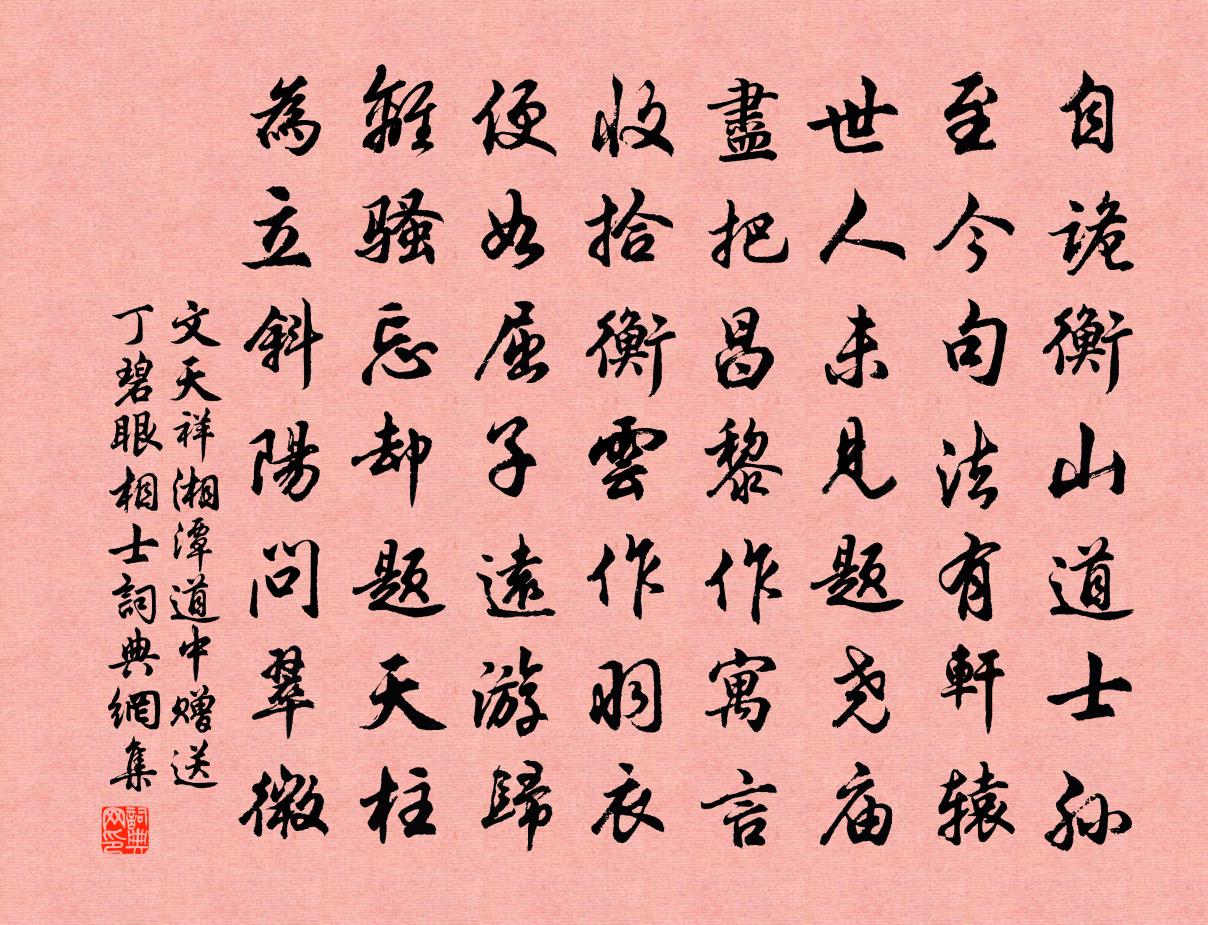 自詭衡山道士孫
至今句法有軒辕
世人未見题尧庙
盡把昌黎作寓言
收拾衡雲作羽衣
便如屈子遠游歸
離騷忘却题天柱
為立斜陽問翠微
文天祥湘潭道中赠送
丁碧眼相士詞典網集
詞典网印